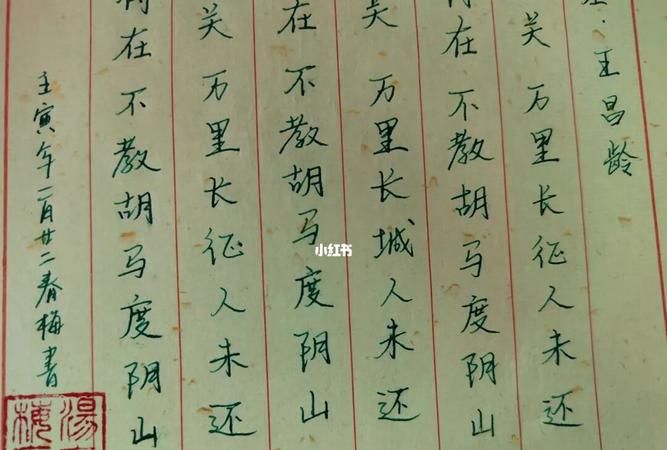 ·王昌龄
关 万里长征人未还
在 不教胡马度阴山
关 万里长城人未还
在 不教胡马度阴山
关 万里长征人未还
在 不教胡马度阴山
壬寅年二月廿二春梅书
湯
梅
小红书